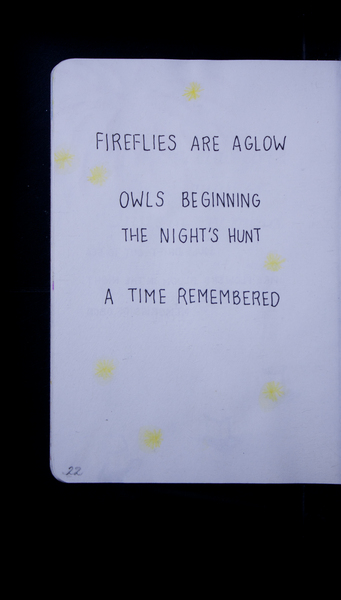 FIREFLIES ARE AGLOW
OWLS BEGINNING
THE NIGHT'S HUNT
A TIME REMEMBERED
22